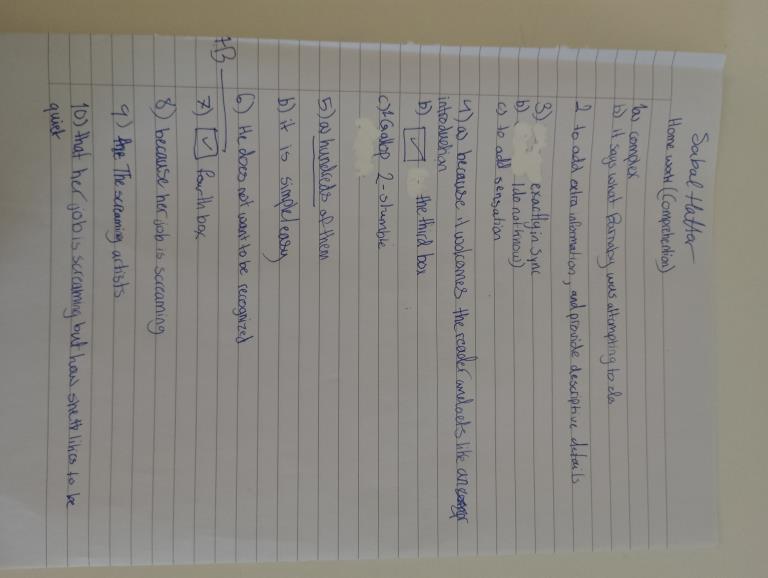 Sabal Hatter
Home work (Comprehention)
1a) complex
b) it says what Barnaby was attempting to do
2 to add extra information, and provide descriptive details
3) exactly in sync
b) I do not know)
c) to add sensation
4) a) because it welcomes the reader and acts like an
introduction
b) the third box
c) 1 Gallop 2-stumble
5) a) hundreds of them
b) it is simple/easy
6) He does not want to be recognized
7) fourth box
8) because her job is screaming
9) The screaming artists
10) that her job is screaming but how she likes to be
quiet